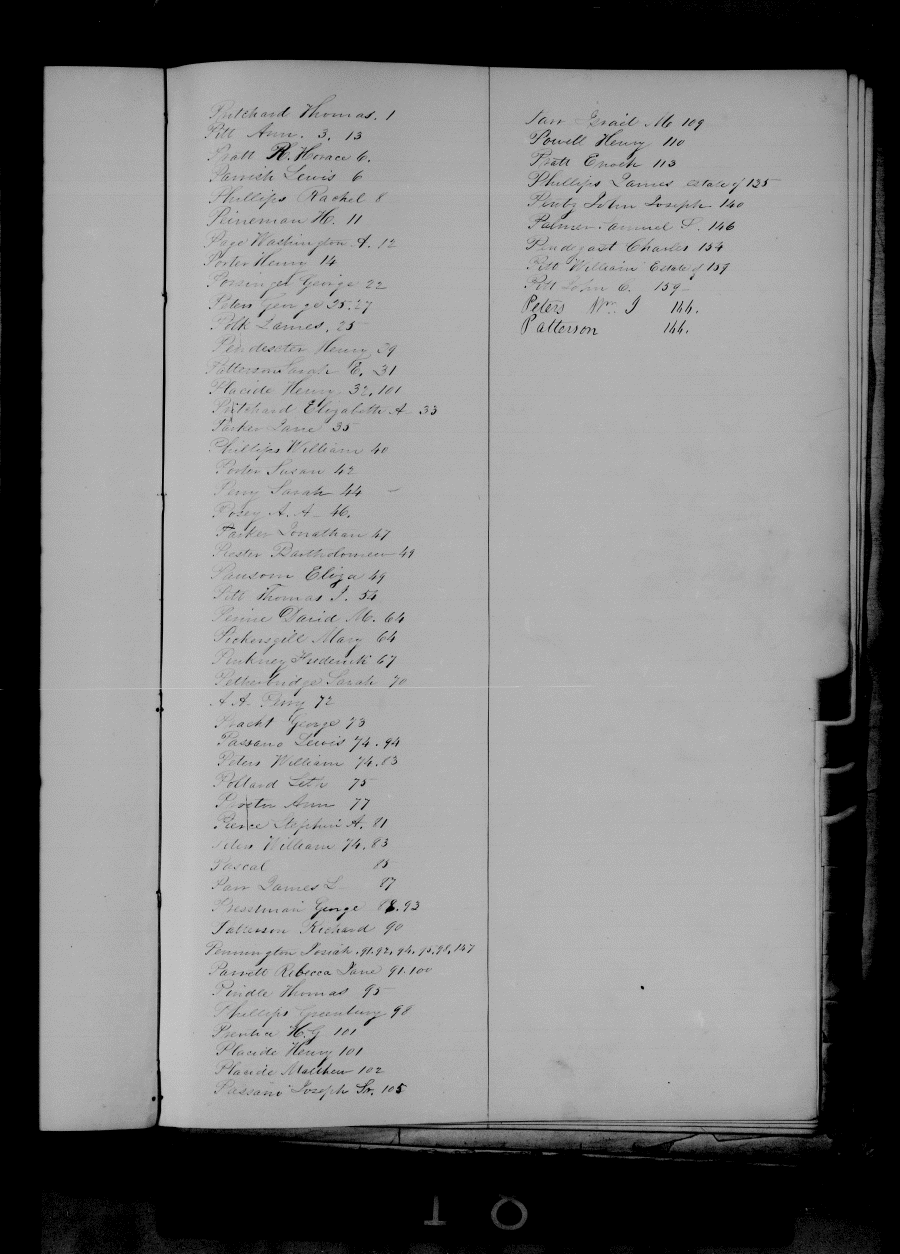 Pritchard Thomas. 1
Pitt Ann. 3. 13
Pratt R. Horace 6.
Parrish Lewis 6
Phillips Rachel 8
Rineman H. 11
Page Washington A. 12
Porter Henry 14
George 22
Peters George 25.27
Polk James. 25
Pendexter Henry 29
Patterson Sarah E. 31
Placide Henry. 32.101
Pritchard Elizabeth A. 33
Parker Jane 35
Phillips William 40
Porter Susan 42
Perry Sarah 44
Posey A. A. 46.
Parker Jonathan 47
Bartholomew 49
Pausom Eliza 49
Pitt Thomas J. 54
David M. 64
Pickersgill Mary 64
Pinkney Frederick 67
Petherbridge Sarah 70
A. A. Perry 72
Pracht George 73
Passano Lewis 74.94
Peters William 74.83
Pollard Seth 75
Proctor Ann 77
Pierce Stephen A. 81
Peters William 74.83
Pascal 85
Parr James L 87
Presstman George 88.93
Patterson Richard 90
Pennington Josiah .91.92.94.95.98.147
Parvell Rebecca Jane 91.100
Pindle Thomas 95
Phillips Greenbury 98
Prentice H.G 101
Placide Henry 101
Placide Matthew 102
Passano Joseph Sr. 105
Parr Israil M 109
Powell Henry 110
Pratt Enoch 113
Phillips James estate of 135
Pentz John Joseph. 140
Palmer Samuel S. 146
Pendegast Charles 154
Pitt William Estate of 159
Pitt John C. 159
Peters Wm. J 144.
Patterson 144.
18